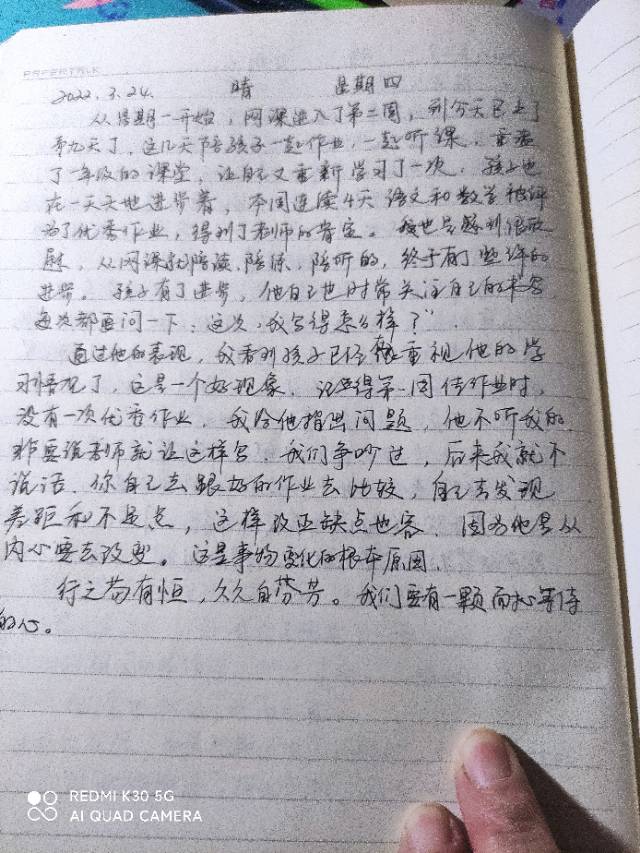 PAPERTALK
2022.3.24. 晴 星期四
从星期一开始，网课进入了第二周，到今天已上了
第九天了，这几天陪孩子一起作业，一起听课，重温
了一年级的课堂，让自己又重新学习了一次，孩子也
在一天天地进步着，本周连续4天语文和数学被评
为了优秀作业，得到了老师的肯定。我也是感到很欣
慰，从网课就陪读，陪练，陪听的，终于有了些许的
进步。孩子有了进步，他自己也时常关注自己的书写
每次都要问一下：这次，我写得怎么样？”
通过他的表现，我看到孩子已经很重视他的学
习情况了，这是一个好现象，记得第一周传作业时，
没有一次优秀作业，我给他指出问题，他不听我的，
非要说老师就让这样写，我们争吵过，后来我就不
说话，你自己去跟好的作业去比较，自己去发现
差距和不足点，这样改正缺点也容，因为他是从
内心要去改变。这是事物变化的根本原因，
行之苟有恒，久久自芬芳。我们要有一颗耐心等待
的心。
REDMI K30 5G
AI QUAD CAMERA